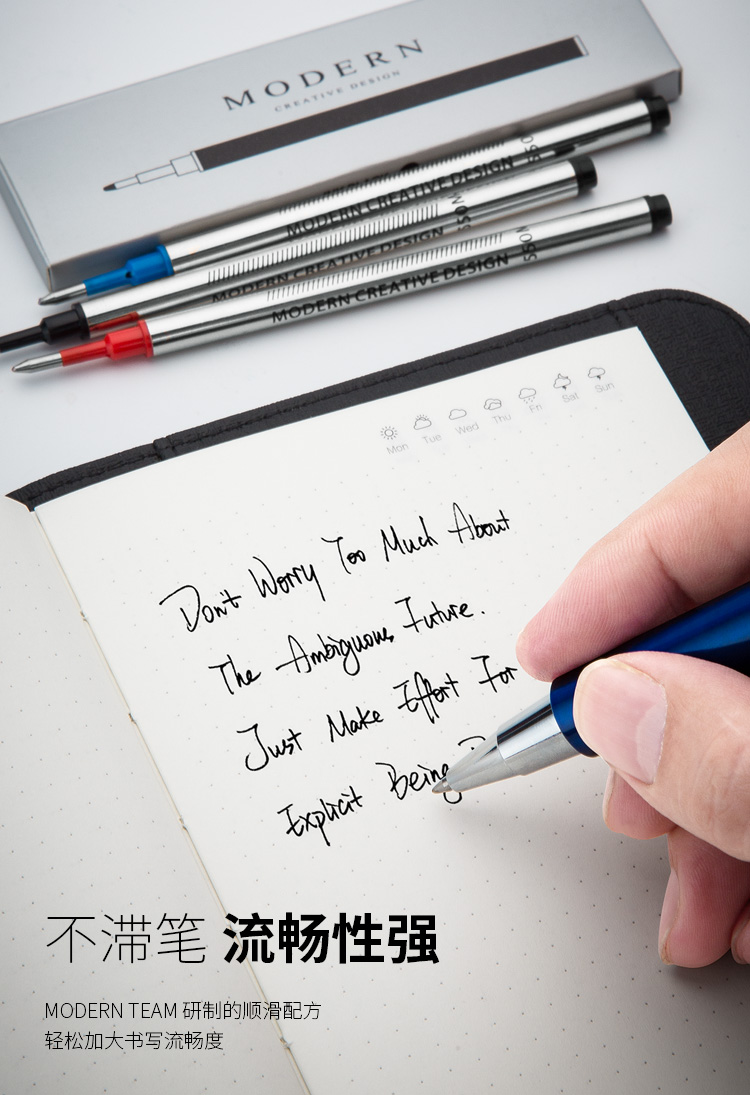 MODERN
CREATIVE DESIGN
MODERN CREATIVE DESIGN
MODERN CREATIVE DESIGN
MODERN CREATIVE DESIGN
Mon Tue Wed Thu Fri Sat Sun
Don't Worry Too Much About
The Ambiguous Future.
Just Make Effort For
Explicit Being
不滞笔 流畅性强
MODERN TEAM 研制的顺滑配方
轻松加大书写流畅度